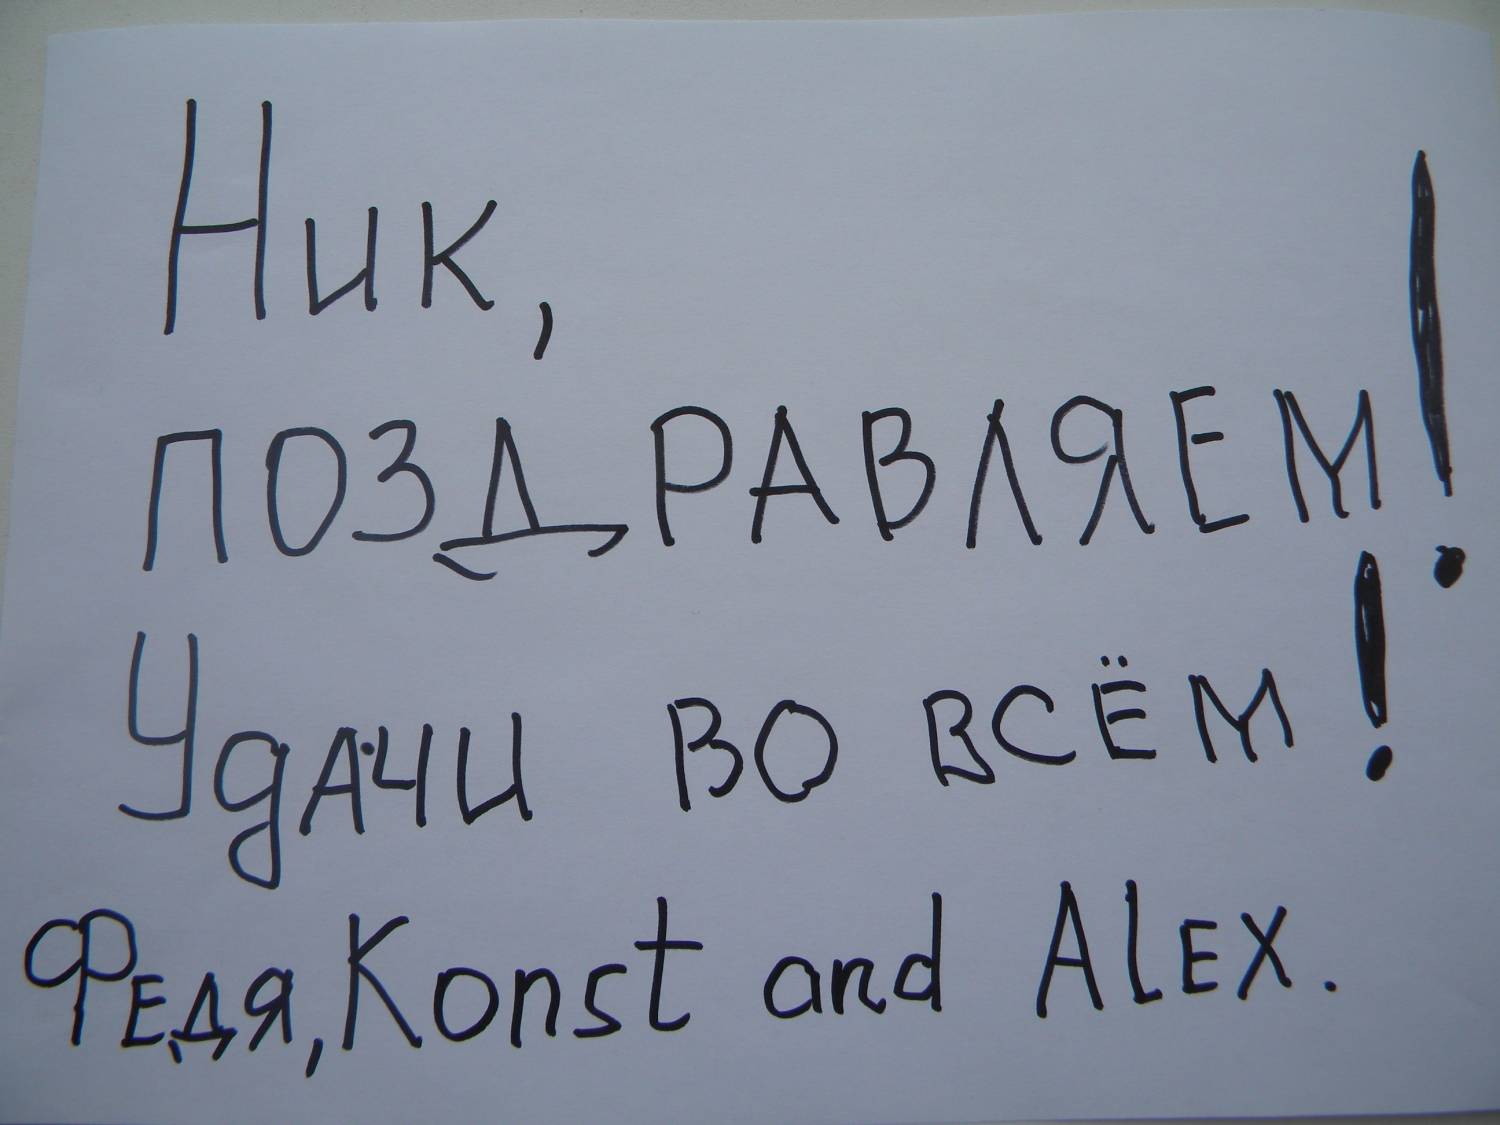 Ник,
ПОЗДРАВЛЯЕМ!
УдАЧИ ВО ВСЁМ!
ФЕДЯ, Konst and ALEX.